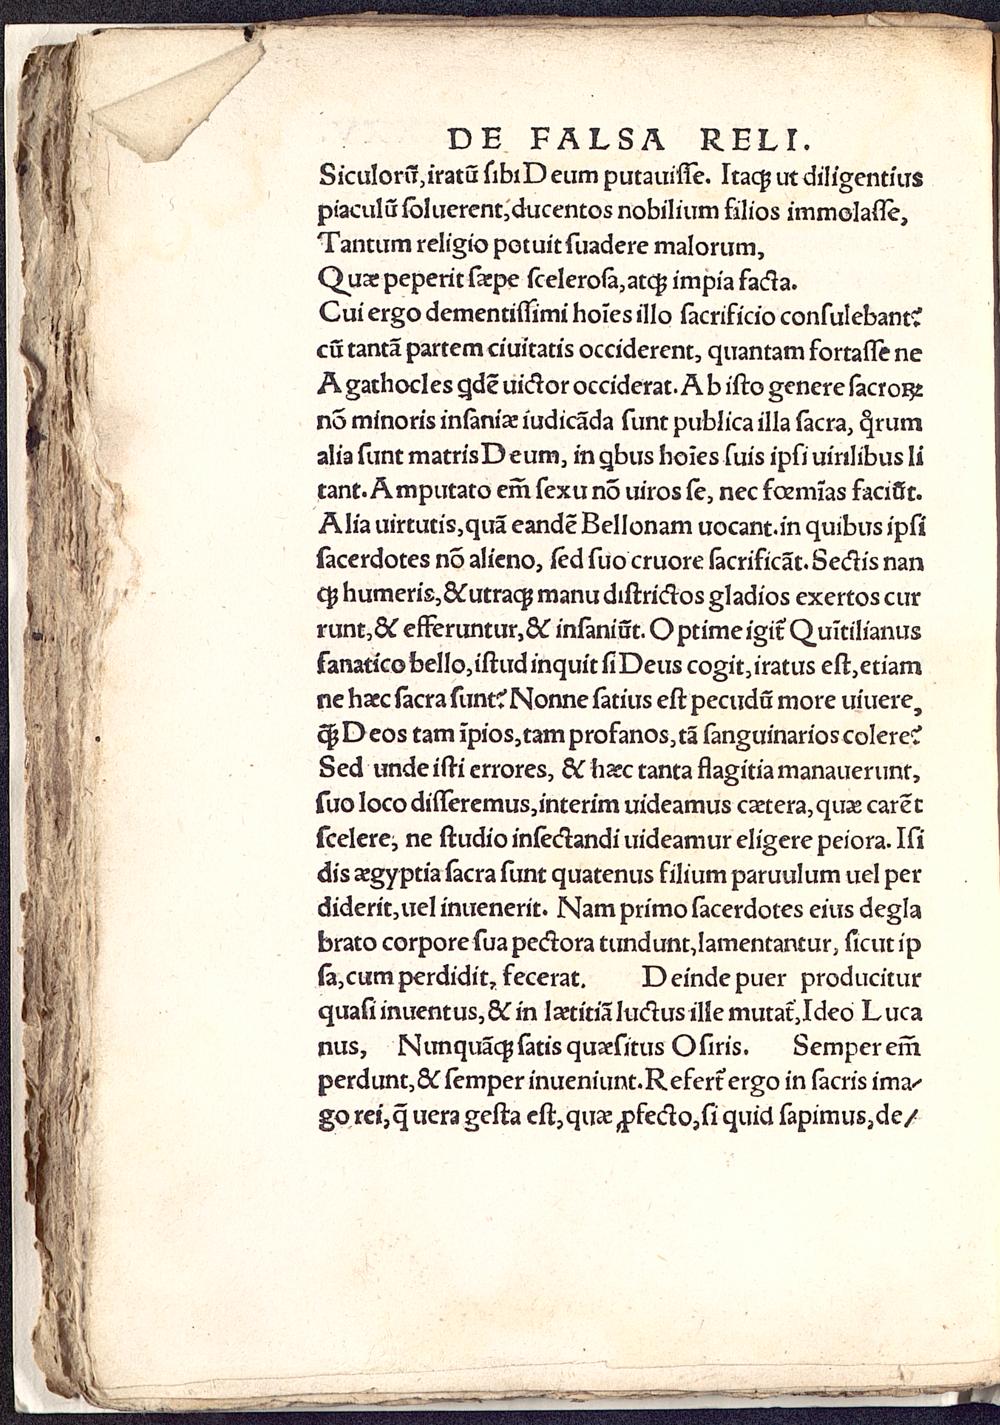 DE FALSA RELI.
Siculorũ, iratũ ſibi Deum putauiſſe. Itaqꝫ ut diligentius
piaculũ ſoluerent, ducentos nobilium filios immolaſſe,
Tantum religio potuit ſuadere malorum,
Quæ peperit ſæpe ſceleroſa, atqꝫ impia facta.
Cui ergo dementiſſimi hoĩes illo ſacrificio conſulebant?
cũ tantã partem ciuitatis occiderent, quantam fortaſſe ne
Agathocles qdẽ uictor occiderat. Ab iſto genere ſacroꝝ
nõ minoris inſaniæ iudicãda ſunt publica illa ſacra, qͦrum
alia ſunt matris Deum, in qbus hoĩes ſuis ipſi uirilibus li
tant. Amputato em̃ ſexu nõ uiros ſe, nec fœmĩas faciũt.
Alia uirtutis, quã eandẽ Bellonam uocant. in quibus ipſi
ſacerdotes nõ alieno, ſed ſuo cruore ſacrificãt. Sectis nan
qꝫ humeris, & utraqꝫ manu diſtrictos gladios exertos cur
runt, & efferuntur, & inſaniũt. Optime igit̃ Quĩtilianus
fanatico bello, iſtud inquit ſi Deus cogit, iratus eſt, etiam
ne hæc ſacra ſunt? Nonne ſatius eſt pecudũ more uiuere,
q̃ꝫ Deos tam ĩpios, tam profanos, tã ſanguinarios colere?
Sed unde iſti errores, & hæc tanta flagitia manauerunt,
ſuo loco differemus, interim uideamus cætera, quæ carẽt
ſcelere, ne ſtudio inſectandi uideamur eligere peiora. Iſi
dis ægyptia ſacra ſunt quatenus filium paruulum uel per
diderit, uel inuenerit. Nam primo ſacerdotes eius degla
brato corpore ſua pectora tundunt, lamentantur, ſicut ip
ſa, cum perdidit, fecerat. Deinde puer producitur
quaſi inuentus, & in lætitiã luctus ille mutat̃, Ideo Luca
nus, Nunquãqꝫ ſatis quæſitus Oſiris. Semper em̃
perdunt, & ſemper inueniunt. Refert̃ ergo in ſacris ima⸗
go rei, q̃ uera geſta eſt, quæ ꝓfecto, ſi quid ſapimus, de/